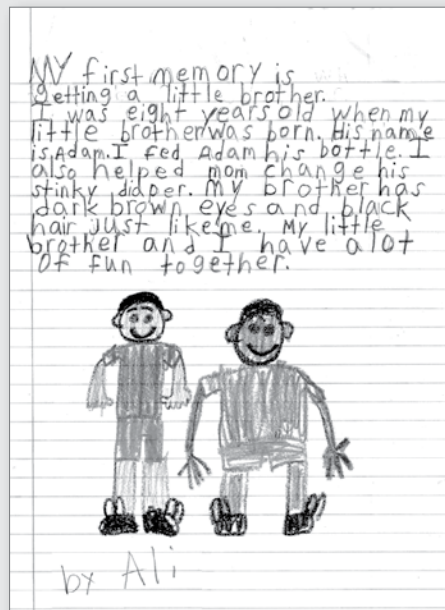 MY first memory is
getting a little brother.
I was eight years old when my
little brother was born. His name
is Adam. I fed Adam his bottle. I
also helped mom change his
stinky diaper. My brother has
dark brown eyes and black
hair just like me. My little
brother and I have alot
of fun together.
by Ali